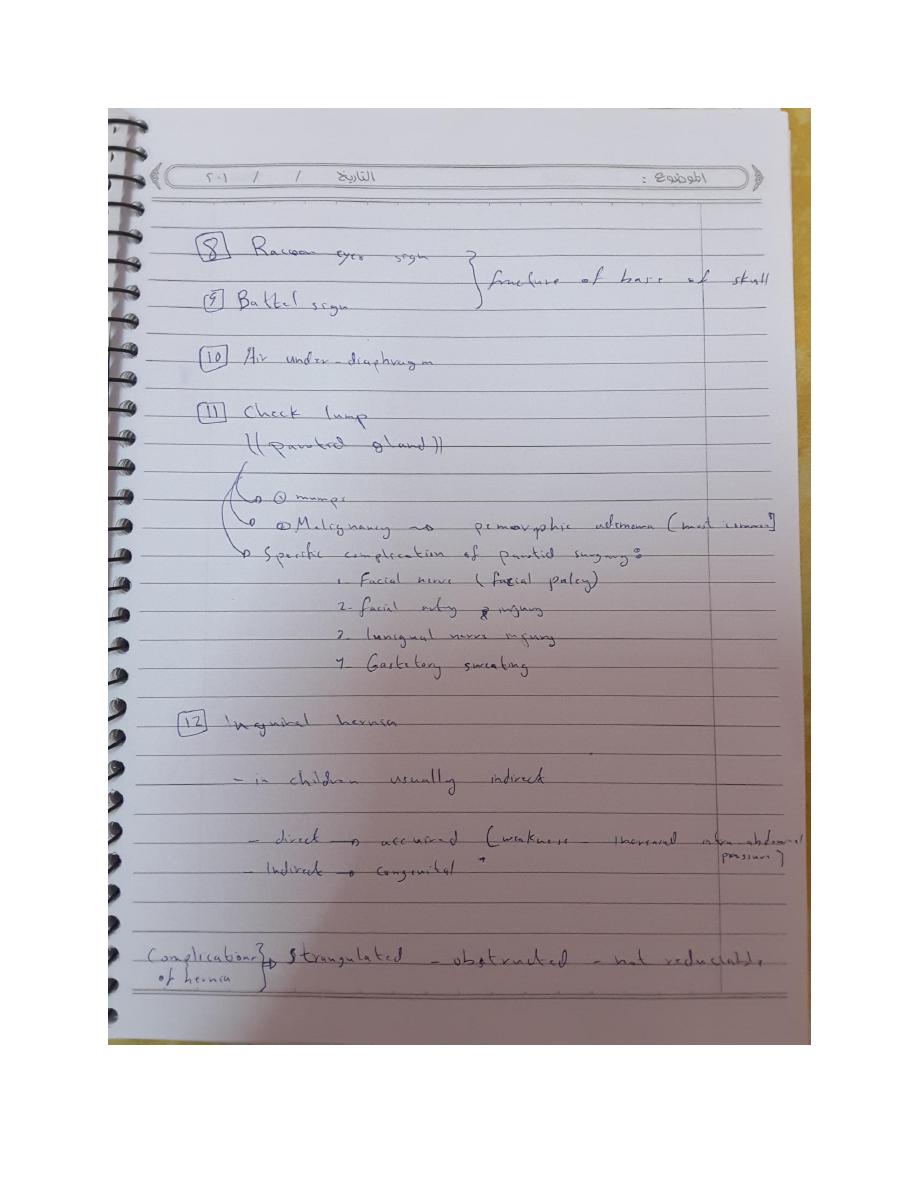 الموضوع : التاريخ / / ٢٠١
8 Raccoon eyes sign } fracture of base of skull
9 Battel sign
10 Air under-diaphragm
11 Cheek lump
((parotid gland))
① mumps
② Malignancy → pemorphic adenoma (most common)
Specific complication of parotid surgery:
1. Facial nerve (facial palcy)
2. facial injury
3. nerve injury
4. sweating
12 Inguinal hernia
- in children usually indirect
- direct → accuired (weakness - increased intra abdominal pressure)
- Indirect → congenital
Complications of hernia } → Strangulated - obstructed - not reducable